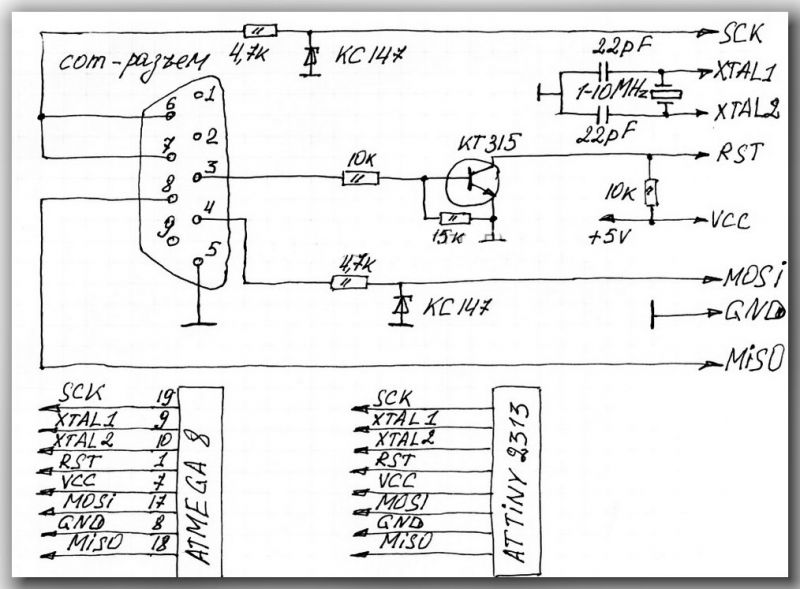 SCK
4,7К
КС147
com-разъем
22pF
XTAL1
1-10MHz
XTAL2
22pF
6
1
7
2
8
3
9
4
5
10К
КТ315
15К
RST
10К
VCC
+5V
4,7К
КС147
MOSi
GND
MiSO
SCK 19
XTAL1 9
XTAL2 10
RST 1
VCC 7
MOSi 17
GND 8
MiSO 18
ATMEGA 8
SCK
XTAL1
XTAL2
RST
VCC
MOSI
GND
MiSO
ATTiNY 2313